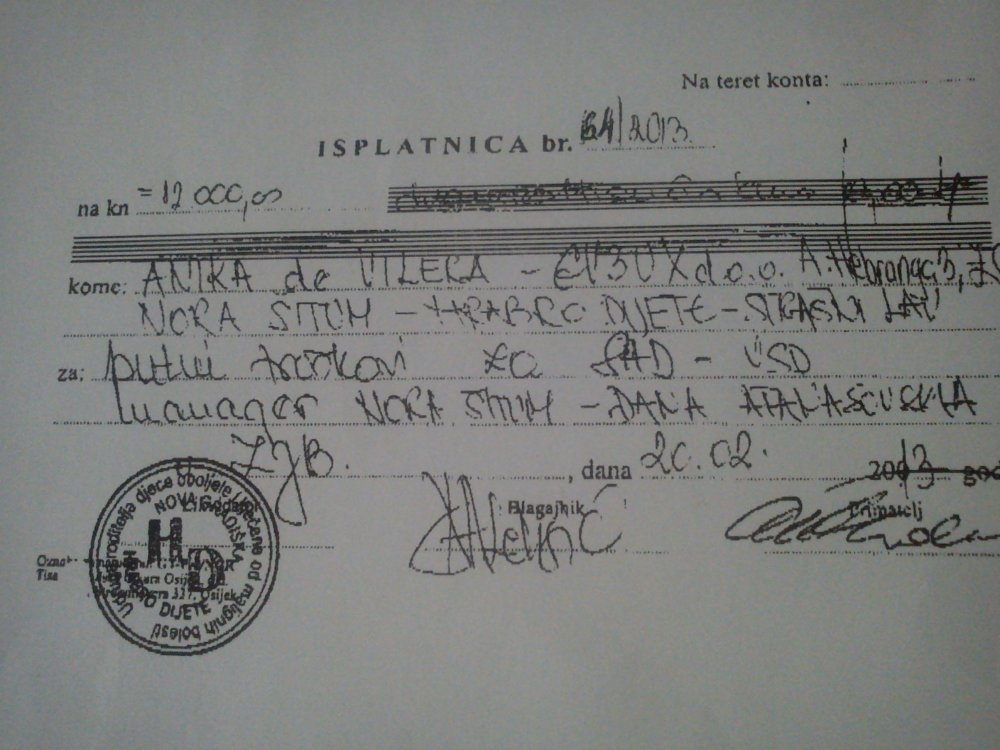 Na teret konta:
ISPLATNICA br. 64/2013.
na kn =12 000,00
kome: ANIKA de VILERA - d.o.o. A. Hebranga
NORA ŠITUM - HRABRO DIJETE - STRAŠNI LAV
za: putni troškovi za SAD - USD
manager NORA ŠITUM - DANA
ZGB. , dana 20.02. 2013 god
Blagajnik Primatelj
Udruga roditelja djece oboljele i liječene od malignih bolesti
NOVA GRADIŠKA
HD
HRABRO DIJETE
Oznaka
Osijek